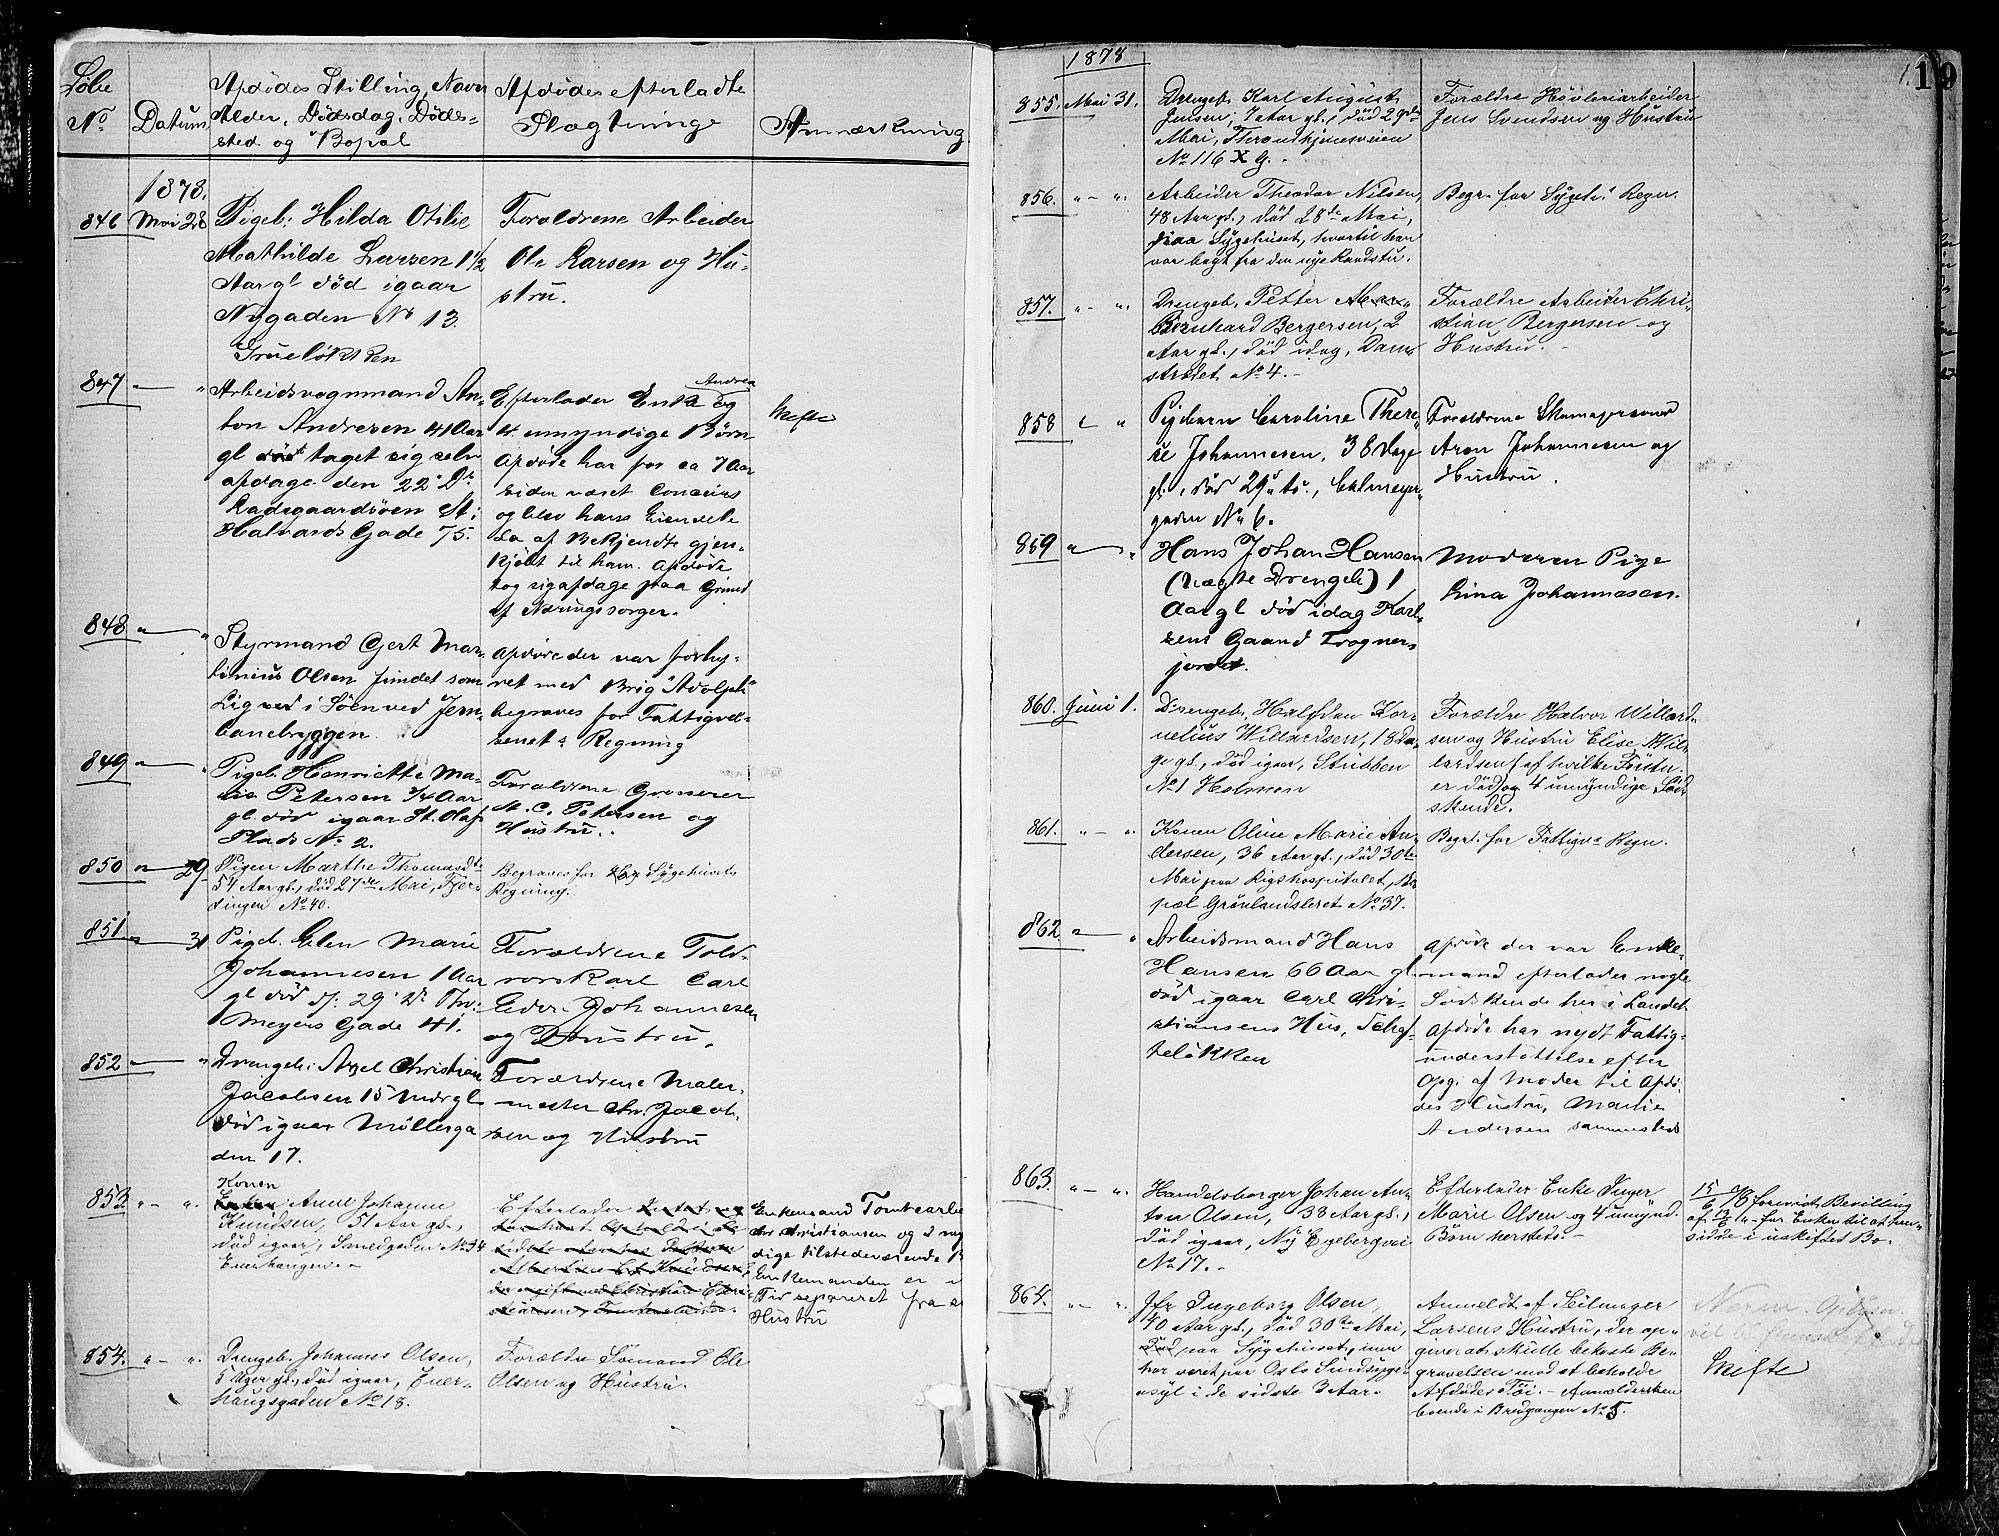 Løbe
No
Datum
Afdødes Stilling, Navn
Alder, Dødsdag, Døds-
sted og Bopæl
Afdødes efterladte
Slægtninge
Anmærkning
1878.
846 Mai 28
Pigeb. Hilda Otilie
Mathilde Larsen 1 1/2
Aar gl død igaar
Nygaden No 13.
Forældrene Arbeider
Ole Larsen og Hu-
stru.
847 — "
Arbeidsvognmand An-
ton Andresen 41 Aar
gl død taget sig selv
afdage den 22de Ds
Ladegaardsøen St:
Halvards Gade 75.
Efterlader Enke Andrea og
4 umyndige Børn
Afdøde har for ca 7 Aar
siden været Concurs
og blev hans Eiendele
da af Bekjendte gjen-
kjøbt til ham. Afdøde
tog sig afdage paa Grund
af Næringssorger.
Skifte
848 " — "
Styrmand Gert Mar-
tinius Olsen fundet som
Lig ved i Søen ved Jern-
banebryggen.
Afdøde der var forhy-
ret med Brig "Adolph"
begraves for Fattigvæ-
senets Regning
849 " — "
Pigeb. Henriette Ma-
rie Petersen 3/4 Aar
gl død igaar St. Olafs
Plads No 2.
Forældrene Grosserer
M. C. Petersen og
Hustru.
850 " — 29
Pigen Marthe Thomasdtr
54 Aar gl., død 27de Mai, Fjer-
dingen No 40.
Begraves for Sygehusets
Regning.
851 " — 31
Pigeb. Elen Marie
Johannesen 1 Aar
gl død d. 29 Ds Thv.
Meyers Gade 41.
Forældrene Told-
rorskarl Carl
Edv. Johannesen
og Hustru.
852 — "
Drengeb: Axel Christian
Jacobsen 15 Mdr gl
død igaar Møllerga
den 17.
Forældrene Maler-
mester Chr. Jacob-
sen og Hustru
853. " — "
Konen
Enken Anne Johanne
Knudsen, 51 Aar gl.,
død igaar, Smedgaden No 34
Enerhaugen. —
Efterlader
Enkemand Tomtearbei
Chs Christiansen og 2 my
dige tilstedeværende B
Enkemanden er i
Tid separeret fra
Hustru
854. " — "
Drengeb. Johannes Olsen,
5 Uger gl., død igaar, Ener-
haugsgaden No 18.
Forældre Sømand Ole
Olsen og Hustru.
1878
19
855. Mai 31.
Drengeb. Karl August
Jensen, 7 Aar gl., død 29de
Mai, Throndhjemsveien
No 116 X g. -
Forældre Høvleriarbeider
Jens Svendsen og Hustru
856. " — "
Arbeider Theodor Nilsen,
48 Aar gl., død 28de Mai,
paa Sygehuset, hvortil han
var bragt fra den nye Raadstu.
Begr. for Sygeh: Regn.
857. " — "
Drengeb. Petter
Bernhard Bergersen, 2
Aar gl., død idag, Dam-
strædet No 4. —
Forældre Arbeider Chri-
stian Bergersen og
Hustru. —
858 " "
Pigebarn Caroline There-
se Johannesen, 38 Dage
gl., død 29 ds., Eilmeyer-
gaden No 6.
Forældrene Skomagersvend
Aron Johannesen og
Hustru.
859 " — "
Hans Johan Hansen
(uægte Drengeb) 1
Aar gl død idag Karl-
sens Gaard Frogner-
jordet.
Moderen Pige
Lina Johannesen.
860. Juni 1.
Drengeb. Halfdan Kor-
nelius Willardsen, 18 Da-
ge gl., død igaar, Stribben
No 1 Holmen
Forældre Halvor Willard-
sen og Hustru Elise Wil-
lardsen af hvilke Første
er død og 4 umyndige Sød-
skende.
861. " — "
Konen Oline Marie An-
dersen, 36 Aar gl., død 30te
Mai paa Rigshospitalet, Bo
pæl Grønlandsleret No 37.
Begr. for Fattigv Regn.
862 " — "
Arbeidsmand Hans
Hansen 66 Aar gl.
død igaar Carl Chri-
stiansens Hus, Schaf-
teløkken
Afdøde der var Enke-
mand efterlader nogle
Sødskende her i Landet
Afdøde har nydt Fattig-
understøttelse efter
Opg. af Moder til Afdø-
des Hustru, Marie
Andersen sammesteds
863. " — "
Handelsborger Johan An-
ton Olsen, 38 Aar gl.,
død igaar, Ny Egebergvei
No 17. -
Efterlader Enke Inger
Marie Olsen og 4 umynd.
Børn hersteds. —
15/6 78 forevist Bevilling
af 13/6 " for Enken til at hen-
sidde i uskiftet Bo.
864. " — "
Jfr Ingeborg Olsen,
40 Aar gl., død 30te Mai,
paa Sygehuset, men
har været paa Oslo Sindssyge-
asyl i de sidste 3 Aar.
Anmeldt af Seilmager
Larsens Hustru, der op-
giver at skulle bekoste Be-
gravelsen mod at beholde
Afdødes Tøi. — Anmeldersken
boende i Bredgangen No 5.
Skifte